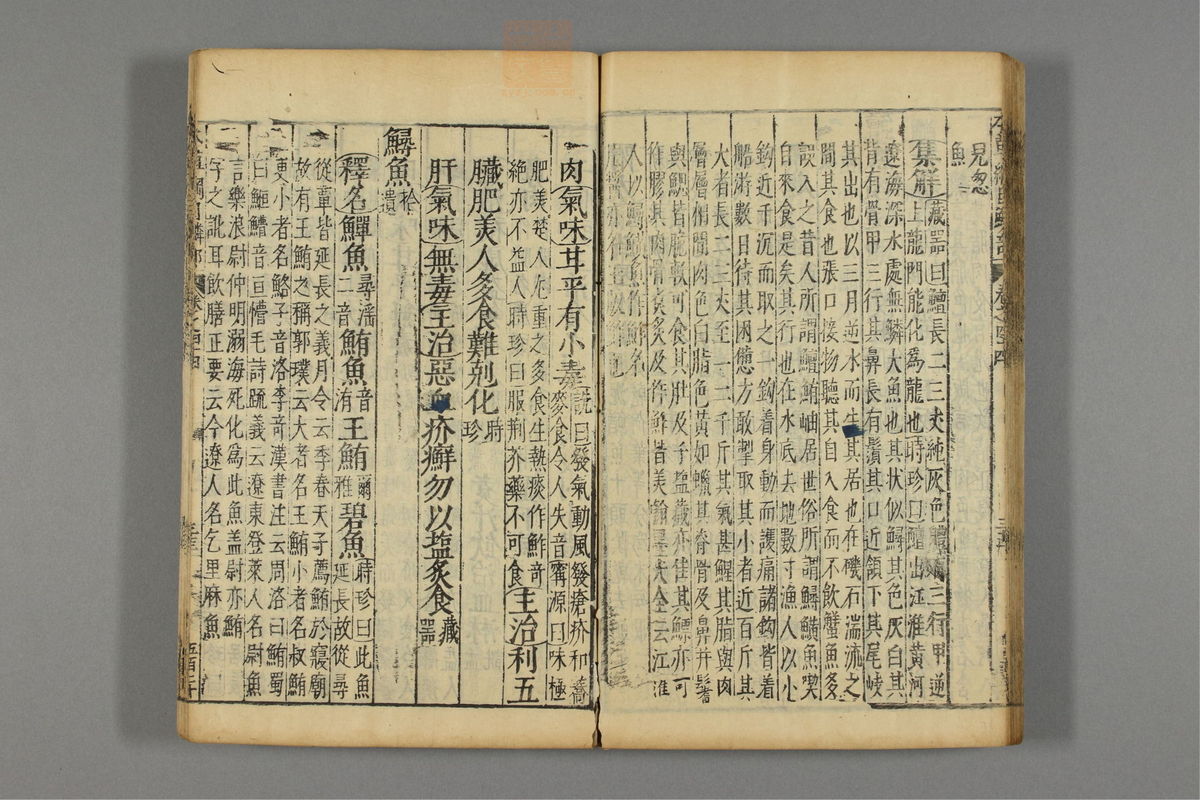 魚
集解藏器曰鱣長二三丈純灰色體有三行甲逆
上龍門能化為龍也時珍曰鱣出江淮黃河
遼海深水處無鱗大魚也其狀似鱘其色灰白其
背有骨甲三行其鼻長有鬚其口近頷下其尾岐
其出也以三月逆水而生其居也在磯石湍流之
間其食也張口接物聽其自入食而不飲蟹魚多
誤入之昔人所謂鱣鮪岫居世俗所謂鱘鱑魚喫
自來食是矣其行也在水底去地數寸漁人以小
鉤近千沉而取之一鉤着身動而護痛諸鉤皆着
船游數日待其困憊方敢掣取其小者近百斤其
大者長二三丈至一二千斤其氣甚腥其脂與肉
層層相間肉色白脂色黃如蠟其脊骨及鼻并鬐
與鰓皆脆軟可食其肚及子鹽藏亦佳其鰾亦可
作膠其肉骨煮炙及作鮓皆美翰墨大全云江淮
人以鱘鰉魚作鮓名
肉氣味甘平有小毒詵曰發氣動風發瘡疥和蕎
麥食令人失音甯源曰味極
肥美楚人尤重之多食生熱痰作鮓奇
絕亦不益人時珍曰服荆芥藥不可食主治利五
臟肥美人多食難剋化時珍
肝氣味無毒主治惡血疥癬勿以鹽炙食藏器
鱘魚拾遺
釋名鱏魚尋淫二音鮪魚音洧王鮪爾雅碧魚時珍曰此魚
延長故從尋
從覃皆延長之義月令云季春天子薦鮪於寢廟
故有王鮪之稱郭璞云大者名王鮪小者名叔鮪
更小者名鮥子音洛李奇漢書注云周洛曰鮪蜀
曰䱭鰽音亘懵毛詩疏義云遼東登萊人名尉魚
言樂浪尉仲明溺海死化為此魚盖尉亦鮪
字之訛耳飲膳正要云今遼人名乞里麻魚